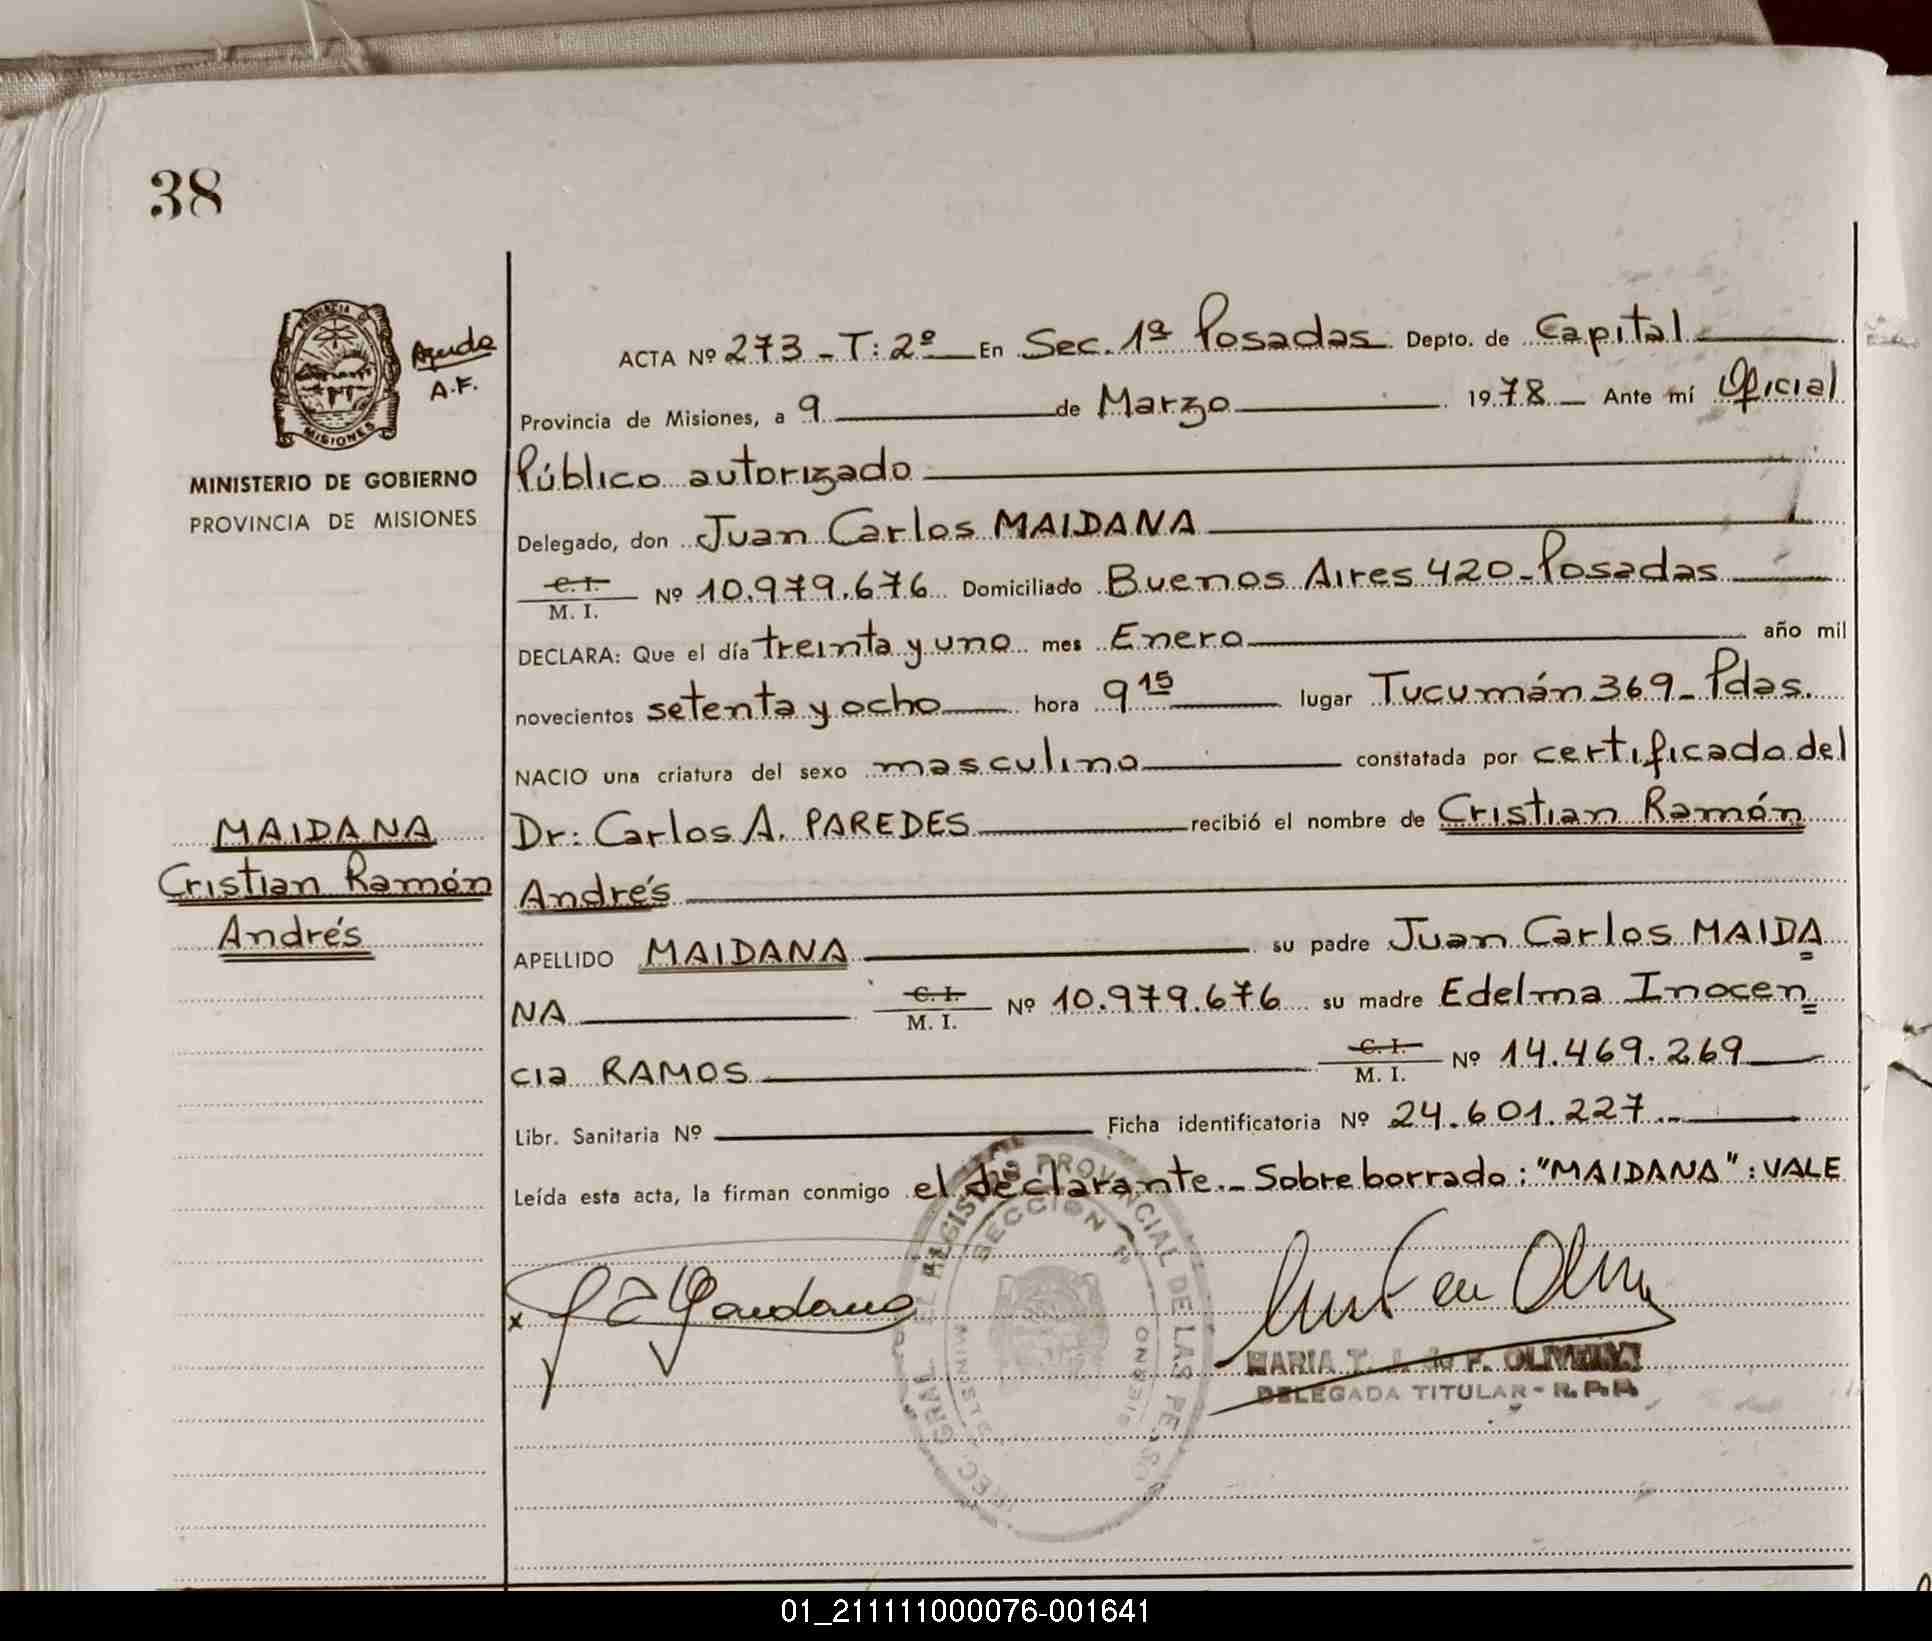 38
PROVINCIA DE
MISIONES
Ayuda
A.F.
MINISTERIO DE GOBIERNO
PROVINCIA DE MISIONES
ACTA Nº 273 - T: 2º En Sec. 1ª Posadas Depto. de Capital
Provincia de Misiones, a 9 de Marzo 1978 Ante mí Oficial
Público autorizado
Delegado, don Juan Carlos MAIDANA
C. I.
M. I. Nº 10.979.676 Domiciliado Buenos Aires 420 - Posadas
DECLARA: Que el día treinta y uno mes Enero año mil
novecientos setenta y ocho hora 9 15 lugar Tucumán 369 - Pdas.
NACIO una criatura del sexo masculino constatada por certificado del
MAIDANA
Cristian Ramón
Andrés
Dr: Carlos A. PAREDES recibió el nombre de Cristian Ramón
Andrés
APELLIDO MAIDANA su padre Juan Carlos MAIDA=
NA C. I. M. I. Nº 10.979.676 su madre Edelma Inocen=
cia RAMOS C. I. M. I. Nº 14.469.269
Libr. Sanitaria Nº Ficha identificatoria Nº 24.601.227.-
Leída esta acta, la firman conmigo el declarante.- Sobre borrado: "MAIDANA": VALE
x
REGISTRO PROVINCIAL DE LAS PERSO
SECCION
MINISTE
GOBIERNO
MARIA T. J. de F. OLIVEIRA
DELEGADA TITULAR - R. P. P.
01_211111000076-001641